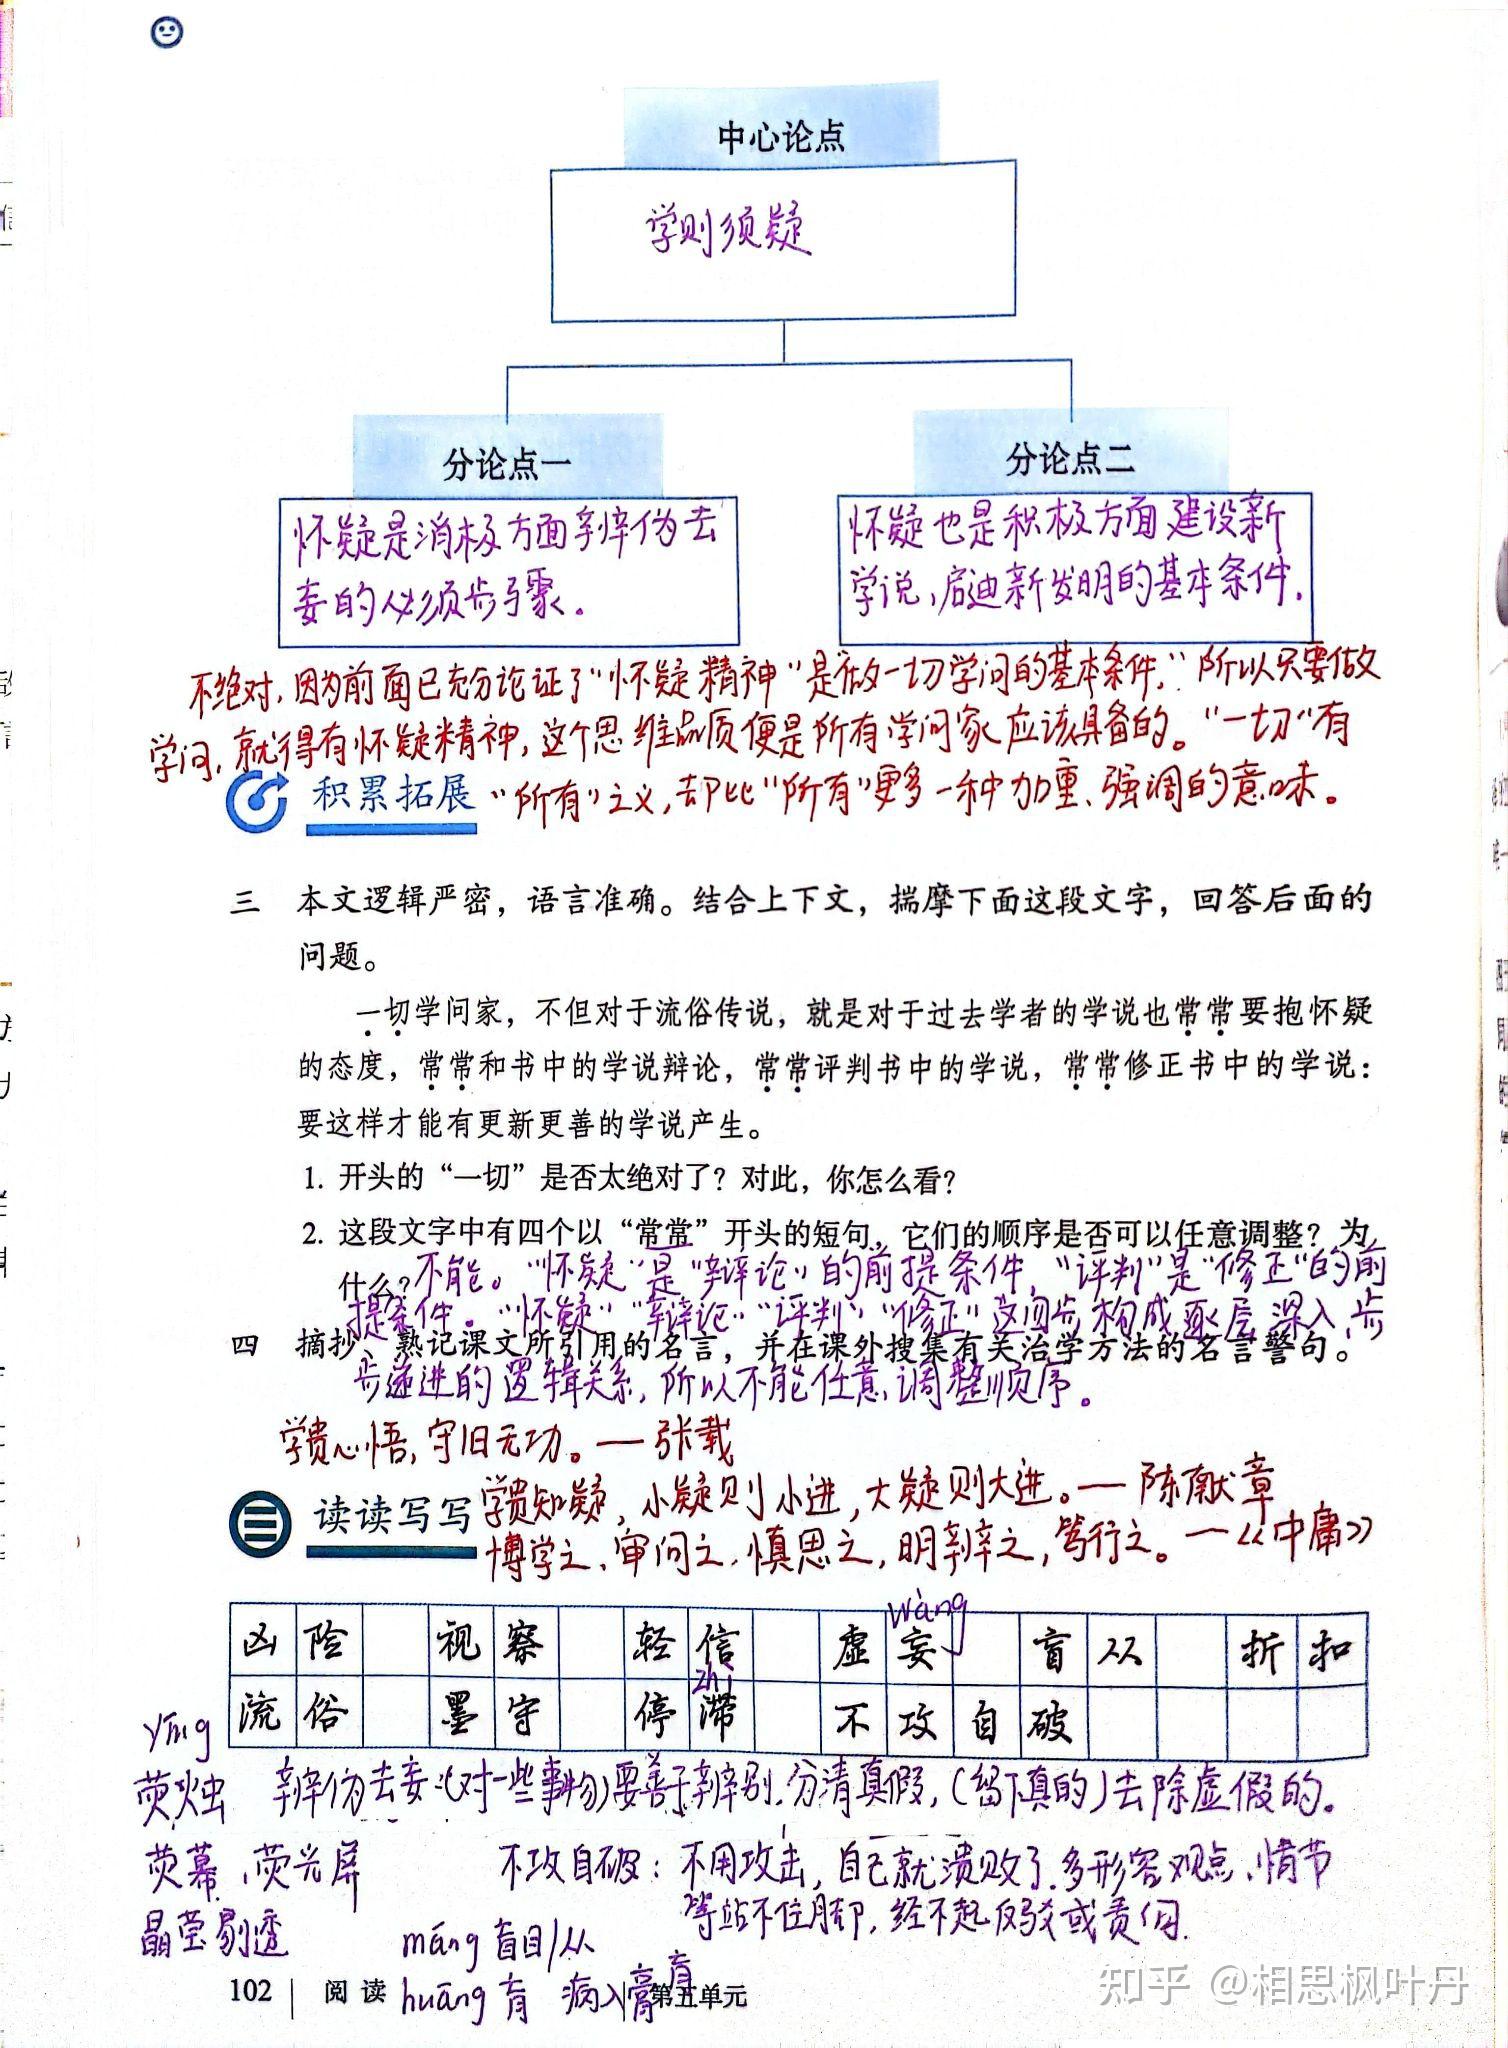 中心论点
学则须疑
分论点一
分论点二
怀疑是消极方面辨伪去
妄的必须步骤。
怀疑也是积极方面建设新
学说、启迪新发明的基本条件.
不绝对,因为前面已充分论证了“怀疑精神”是做一切学问的基本条件,”所以只要做
学问,就得有怀疑精神,这个思维品质便是所有学问家应该具备的。“一切”有
积累拓展 “所有”之义,却比“所有”更多一种加重、强调的意味。
三 本文逻辑严密，语言准确。结合上下文，揣摩下面这段文字，回答后面的
问题。
一切学问家，不但对于流俗传说，就是对于过去学者的学说也常常要抱怀疑
的态度，常常和书中的学说辩论，常常评判书中的学说，常常修正书中的学说：
要这样才能有更新更善的学说产生。
1. 开头的“一切”是否太绝对了？对此，你怎么看？
2. 这段文字中有四个以“常常”开头的短句，它们的顺序是否可以任意调整？为
什么？不能。“怀疑”是“辩论”的前提条件,“评判”是“修正”的前
提条件。“怀疑”“辩论”“评判”“修正”这间步构成逐层深入、步
四 摘抄、熟记课文所引用的名言，并在课外搜集有关治学方法的名言警句。
步递进的逻辑关系,所以不能任意调整顺序。
学贵心悟,守旧无功。——张载
读读写写 学贵知疑,小疑则小进,大疑则大进。——陈献章
博学之、审问之、慎思之,明辨之,笃行之。——《中庸》
wàng
凶险 视察 轻信 虚妄 盲从 折扣
zhì
流俗 墨守 停滞 不攻自破
yíng
荧烛 辨伪去妄:(对一些事物)要善于辨别.分清真假,(留下真的)去除虚假的.
荧幕、荧光屏 不攻自破:不用攻击,自己就溃败了.多形容观点、情节
等站不住脚,经不起反驳或责问.
晶莹剔透
máng 盲目/从
huāng 肓 病入膏肓
102 阅读 第五单元
知乎 @相思枫叶丹